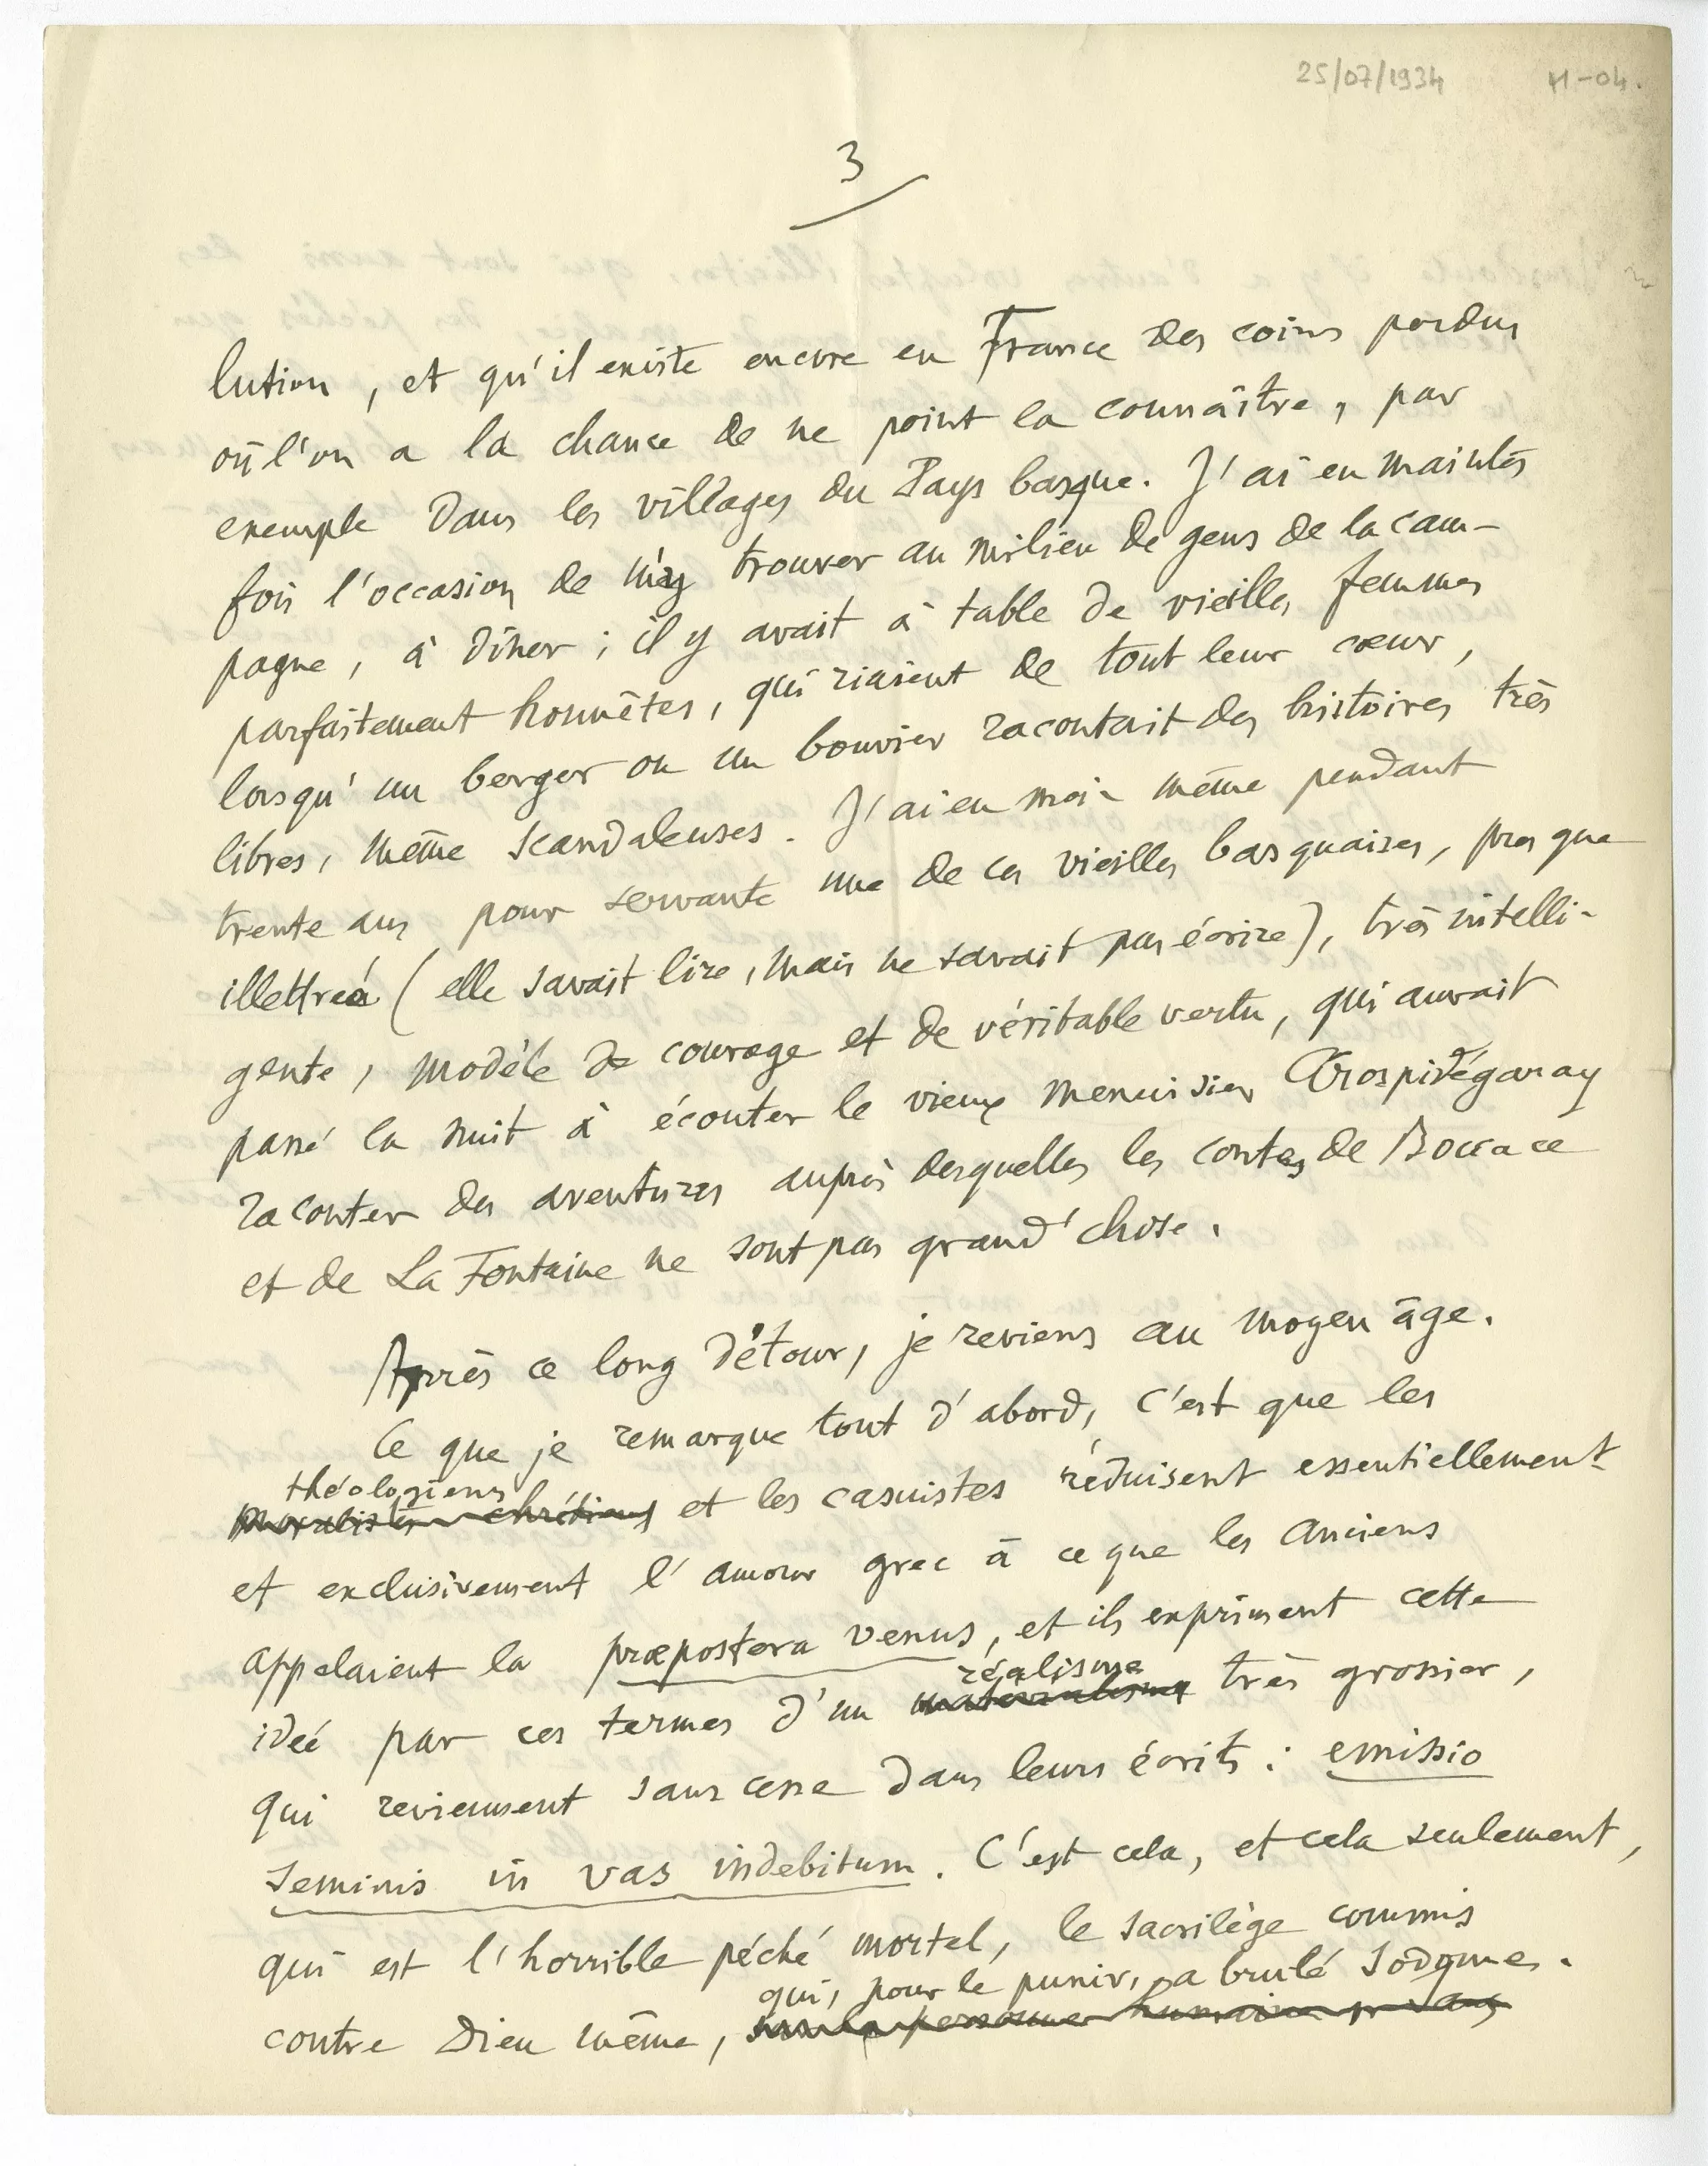 25/07/1934
3
lution, et qu'il existe encore en France des coins perdus
où l'on a la chance de ne point la connaître, par
exemple dans les villages du Pays basque. J'ai eu maintes
fois l'occasion de m'y trouver au milieu de gens de la cam-
pagne, à dîner ; il y avait à table de vieilles femmes
parfaitement honnêtes, qui riaient de tout leur cœur,
lorsqu'un berger ou un bouvier racontait des histoires très
libres, même scandaleuses. J'ai eu moi-même pendant
trente ans pour servante une de ces vieilles basquaises, presque
illettrée (elle savait lire, mais ne savait pas écrire), très intelli-
gente, modèle de courage et de véritable vertu, qui aurait
passé la nuit à écouter le vieux menuisier Arospidégaray
raconter des aventures auprès desquelles les contes de Boccace
et de La Fontaine ne sont pas grand'chose.
Après ce long détour, je reviens au moyen âge.
Ce que je remarque tout d'abord, c'est que les
théologiens
moralistes chrétiens et les casuistes réduisent essentiellement
et exclusivement l'amour grec à ce que les Anciens
appelaient la præpostera venus, et ils expriment cette
réalisme
idée par ces termes d'un matérialisme très grossier,
qui reviennent sans cesse dans leurs écrits : emissio
seminis in vas indebitum. C'est cela, et cela seulement,
qui est l'horrible péché mortel, le sacrilège commis
qui, pour le punir, a brulé Sodome.
contre Dieu même, personne humaine